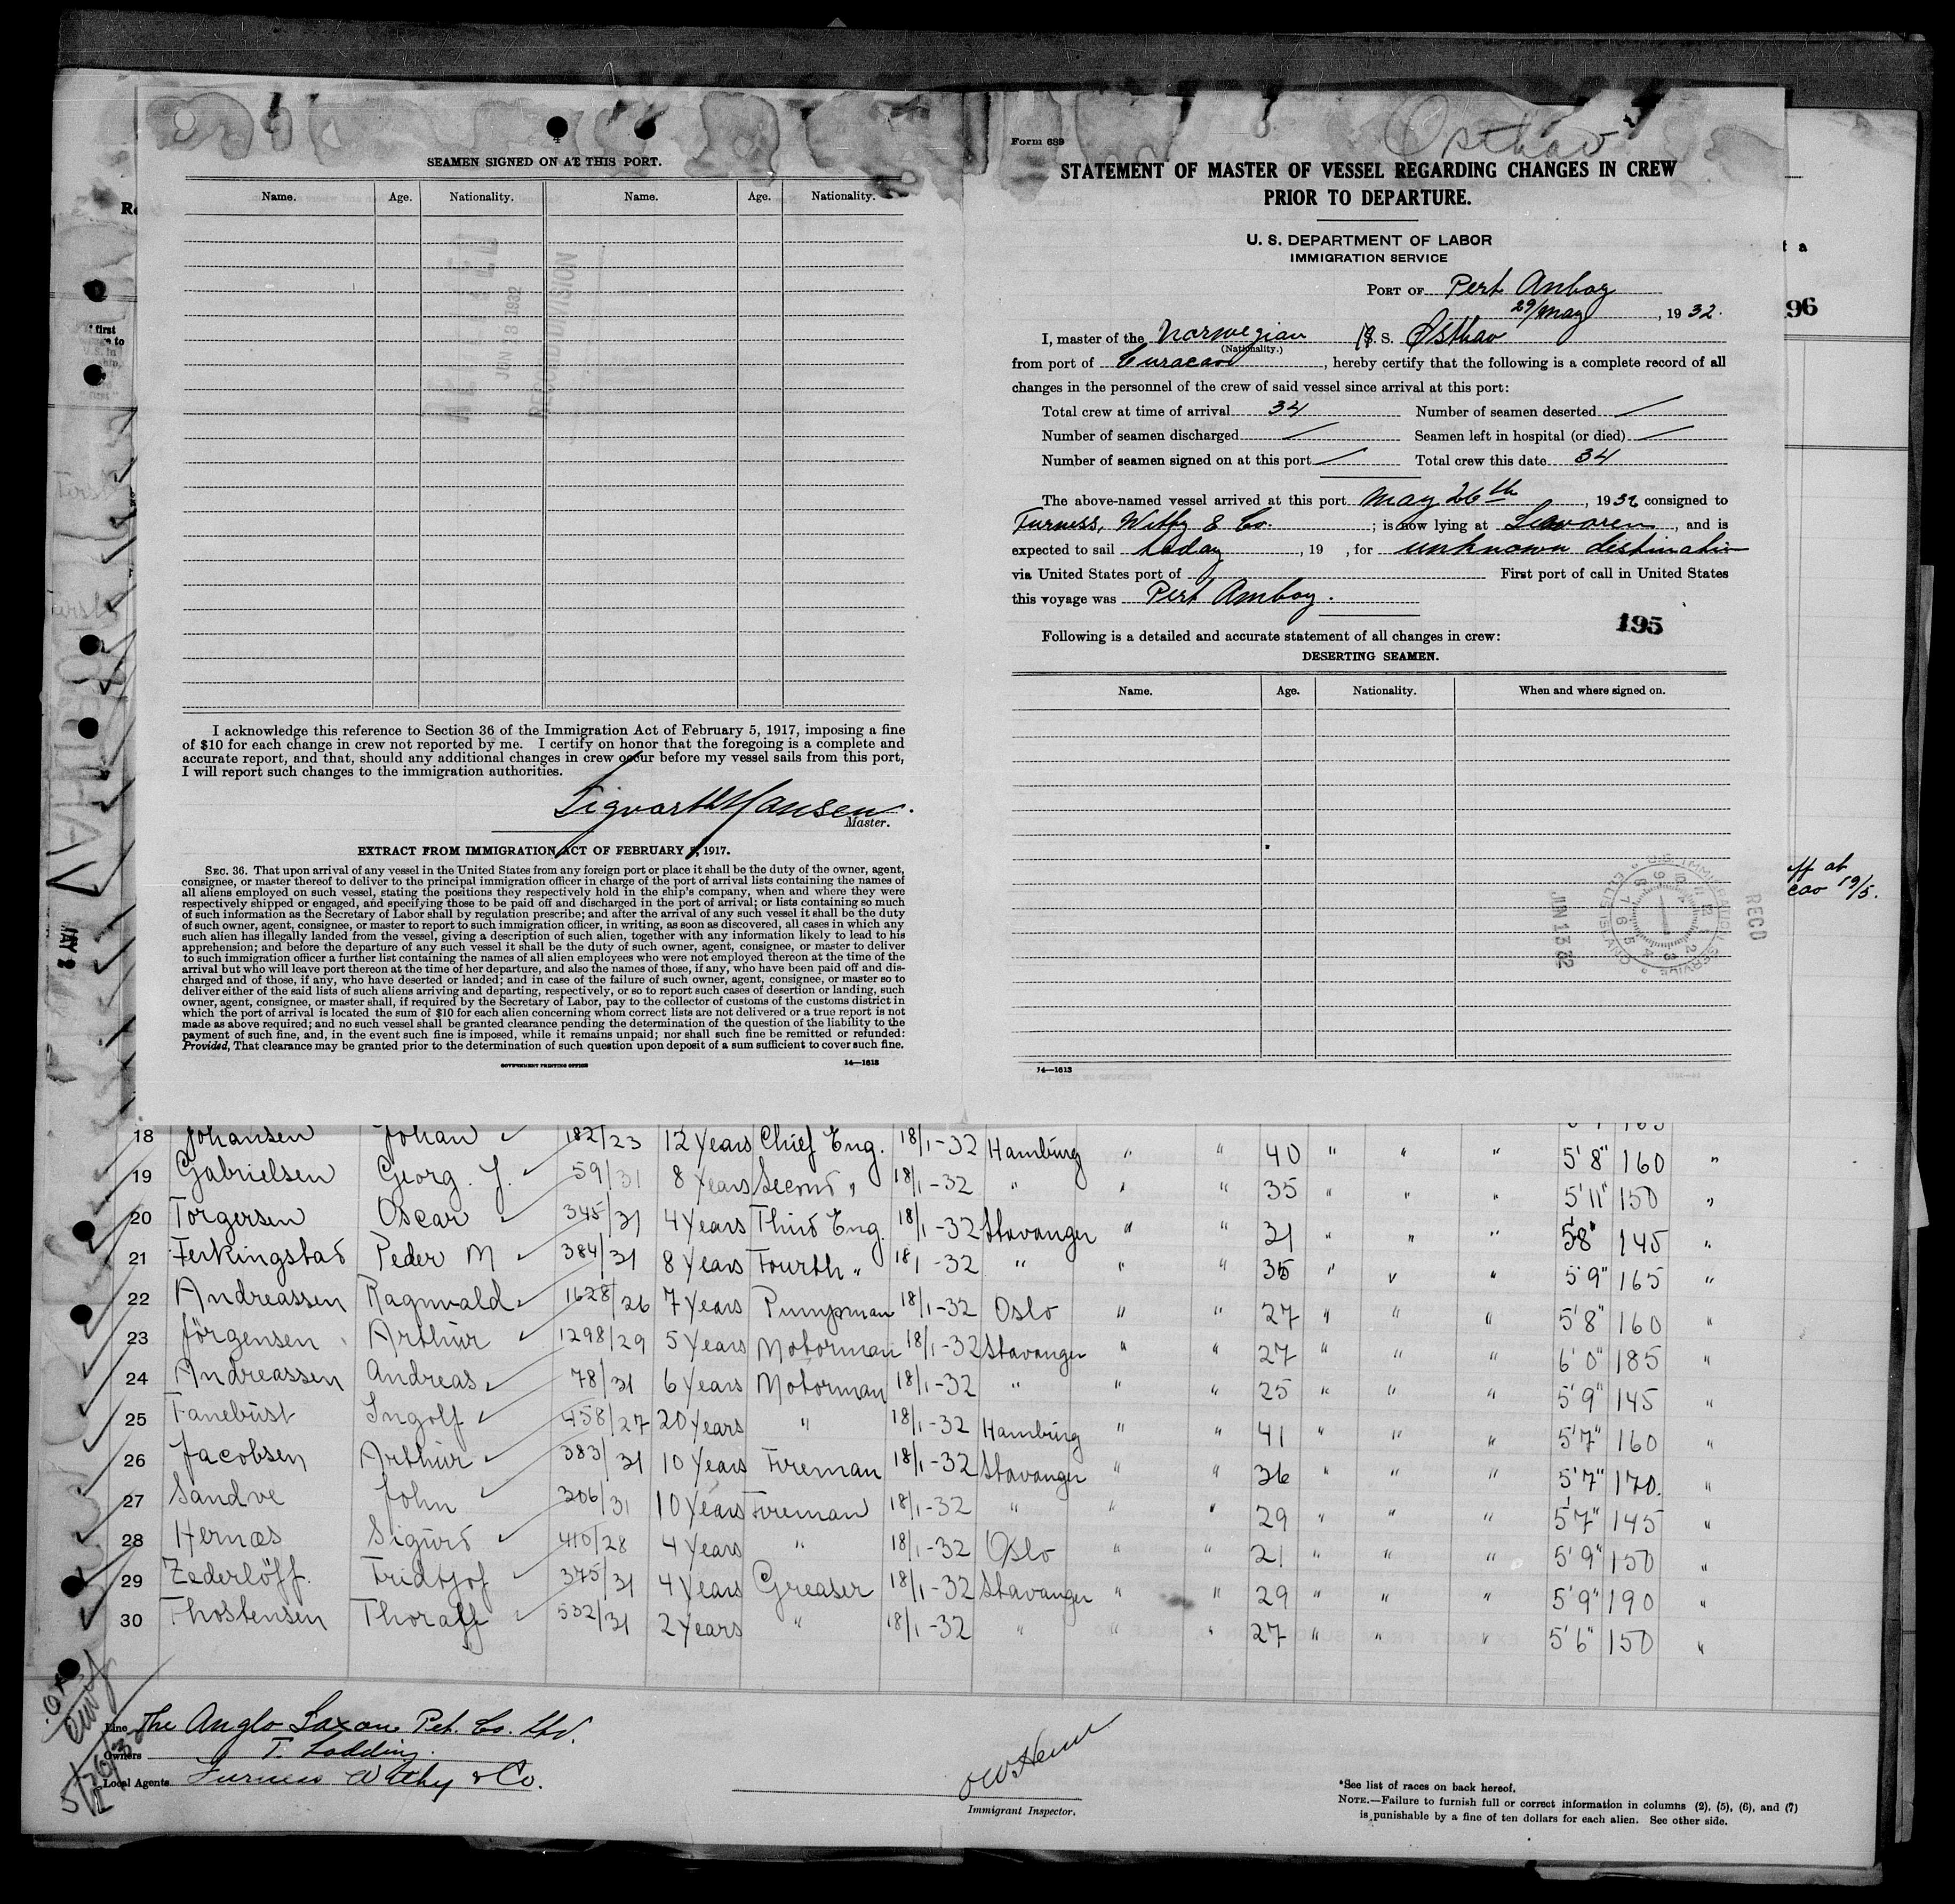 SEAMEN SIGNED ON AT THIS PORT.
Name. Age. Nationality. Name. Age. Nationality.
JUN 8 1932
RECORD DIVISION
I acknowledge this reference to Section 36 of the Immigration Act of February 5, 1917, imposing a fine
of $10 for each change in crew not reported by me. I certify on honor that the foregoing is a complete and
accurate report, and that, should any additional changes in crew occur before my vessel sails from this port,
I will report such changes to the immigration authorities.
Sigvarth Hansen.
Master.
EXTRACT FROM IMMIGRATION ACT OF FEBRUARY 5, 1917.
SEC. 36. That upon arrival of any vessel in the United States from any foreign port or place it shall be the duty of the owner, agent,
consignee, or master thereof to deliver to the principal immigration officer in charge of the port of arrival lists containing the names of
all aliens employed on such vessel, stating the positions they respectively hold in the ship's company, when and where they were
respectively shipped or engaged, and specifying those to be paid off and discharged in the port of arrival; or lists containing so much
of such information as the Secretary of Labor shall by regulation prescribe; and after the arrival of any such vessel it shall be the duty
of such owner, agent, consignee, or master to report to such immigration officer, in writing, as soon as discovered, all cases in which any
such alien has illegally landed from the vessel, giving a description of such alien, together with any information likely to lead to his
apprehension; and before the departure of any such vessel it shall be the duty of such owner, agent, consignee, or master to deliver
to such immigration officer a further list containing the names of all alien employees who were not employed thereon at the time of the
arrival but who will leave port thereon at the time of her departure, and also the names of those, if any, who have been paid off and dis-
charged and of those, if any, who have deserted or landed; and in case of the failure of such owner, agent, consignee, or master so to
deliver either of the said lists of such aliens arriving and departing, respectively, or so to report such cases of desertion or landing, such
owner, agent, consignee, or master shall, if required by the Secretary of Labor, pay to the collector of customs of the customs district in
which the port of arrival is located the sum of $10 for each alien concerning whom correct lists are not delivered or a true report is not
made as above required; and no such vessel shall be granted clearance pending the determination of the question of the liability to the
payment of such fine, and, in the event such fine is imposed, while it remains unpaid; nor shall such fine be remitted or refunded:
Provided, That clearance may be granted prior to the determination of such question upon deposit of a sum sufficient to cover such fine.
GOVERNMENT PRINTING OFFICE 14—1613
Form 689
Osthav
STATEMENT OF MASTER OF VESSEL REGARDING CHANGES IN CREW
PRIOR TO DEPARTURE.
U. S. DEPARTMENT OF LABOR
IMMIGRATION SERVICE
PORT OF Pert Amboy
29/May, 1932.
I, master of the Norwegian S. S. Østhav
(Nationality.)
from port of Curacao, hereby certify that the following is a complete record of all
changes in the personnel of the crew of said vessel since arrival at this port:
Total crew at time of arrival 34 Number of seamen deserted /
Number of seamen discharged / Seamen left in hospital (or died) /
Number of seamen signed on at this port / Total crew this date 34
The above-named vessel arrived at this port May 26th, 1932 consigned to
Furness, Withy & Co. ; is now lying at Sewaren, and is
expected to sail today, 19 , for unknown distination
via United States port of First port of call in United States
this voyage was Pert Amboy.
195
Following is a detailed and accurate statement of all changes in crew:
DESERTING SEAMEN.
Name. Age. Nationality. When and where signed on.
JUN 13 32
U.S. IMMIGRATION SERVICE ELLIS ISLAND
RECD
14—1613
t a
96
ff at
cao 19/5.
18 Johansen Johan 182/23 12 Years Chief Eng. 18/1-32 Hamburg " " 40 " " " 160 "
19 Gabrielsen Georg. J. 59/31 8 Years Second " 18/1-32 " " " 35 " " " 5'8" 160 "
20 Torgersen Oscar 345/31 4 Years Third Eng. 18/1-32 Stavanger " " 31 " " " 5'11" 150 "
21 Ferkingstad Peder M 384/31 8 Years Fourth " 18/1-32 " " " 35 " " " 5'8" 145 "
22 Andreassen Ragnvald 1628/26 7 Years Pumpman 18/1-32 Oslo " " 27 " " " 5'9" 165 "
23 Jörgensen Arthur 1298/29 5 Years Motorman 18/1-32 Stavanger " " 27 " " " 5'8" 160 "
24 Andreassen Andreas 78/31 6 Years Motorman 18/1-32 " " " 25 " " " 6'0" 185 "
25 Fanebust Ingolf 458/27 20 Years " 18/1-32 Hamburg " " 41 " " " 5'9" 145 "
26 Jacobsen Arthur 383/31 10 Years Fireman 18/1-32 Stavanger " " 36 " " " 5'7" 160 "
27 Sandve John 306/31 10 Years Fireman 18/1-32 " " " 29 " " " 5'7" 170. "
28 Hernæs Sigurd 410/28 4 Years " 18/1-32 Oslo " " 21 " " " 5'7" 145 "
29 Zederlöff. Fridtjof 375/31 4 Years Greaser 18/1-32 Stavanger " " 29 " " " 5'9" 150 "
30 Thostensen Thoralf 532/31 2 Years " 18/1-32 " " " 27 " " " 5'9" 190 "
5'6" 150 "
Line The Anglo Saxon Pet. Co. Ltd.
Owners T. Lodding.
Local Agents Furness Withy & Co.
Immigrant Inspector.
*See list of races on back hereof.
NOTE.—Failure to furnish full or correct information in columns (2), (5), (6), and (7)
is punishable by a fine of ten dollars for each alien. See other side.